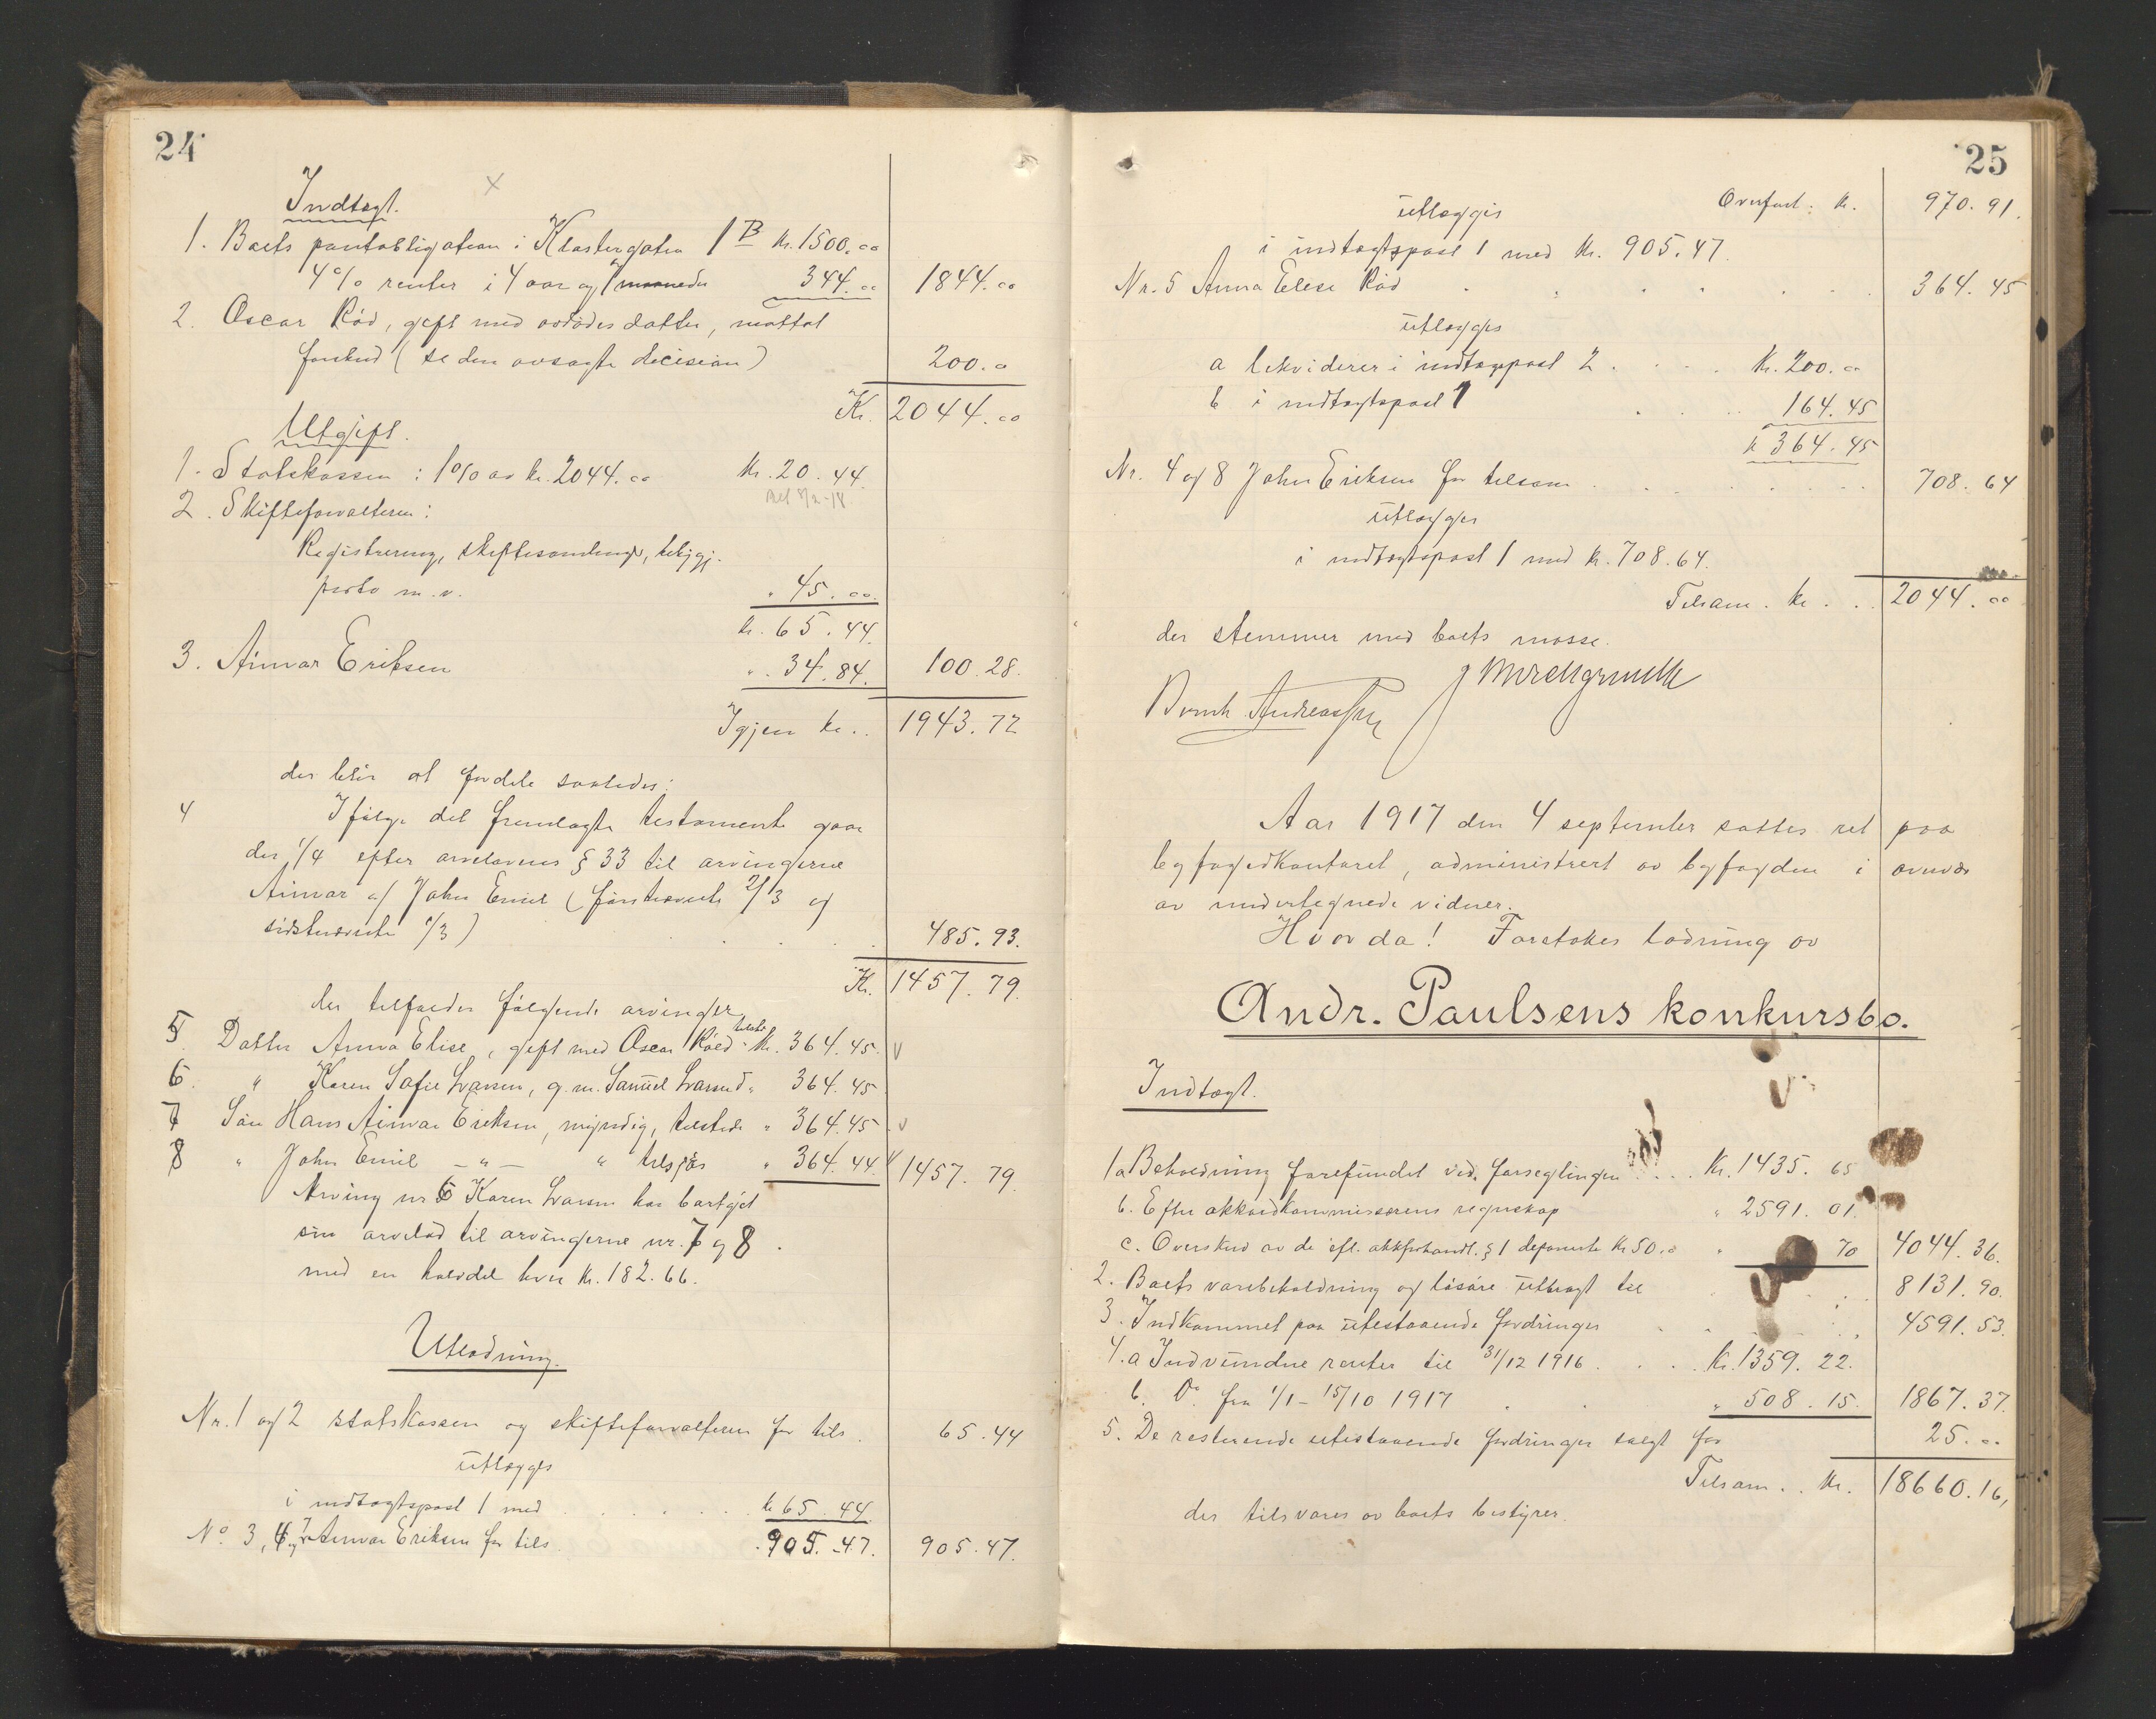 24
Indtægt.
1. Boets pantobligation i Klostergaten 1 B kr. 1500.00
4% renter i 4 aar og 344.00 1844.00
2. Oscar Röd, gift med avdødes datter, mottat
forskud (se den avsagte decision) 200.0
Kr. 2044.00
Utgift.
1. Statskassen: 1% av kr. 2044.00 kr. 20.44
2. Skifteforvalteren:
Registrering, skiftesamlinger,
porto m.v. " 45.00.
kr. 65.44.
3. Ainvar Eriksen " 34.84. 100.28.
Igjen kr. . 1943.72
der blir at fordele saaledes:
4 Ifölge det fremlagte testamente gaar
der 1/4 efter arvelovens § 33 til arvingerne
Ainvar og John Emil (förstnævnte 2/3 og
sidstnævnte 1/3) 485.93.
Kr. 1457.79.
der tilfalder fölgende arvinger
5. Datter Anna Elise, gift med Oscar Röed tilstede kr. 364.45 v
6. " Karen Sofie Larsen, g.m. Samuel Larsen " 364.45
7 Sön Hans Ainvar Eriksen, myndig, tilstede " 364.45 v
8 " John Emil — " — " tilsjös " 364.44 1457.79.
Arving nr 6 Karen Larsen har bortgit
sin arvelod til arvingerne nr. 7 og 8.
med en halvdel hver kr. 182.66.
Utlodning.
Nr. 1 og 2 statskassen og skifteforvalteren for tils. 65.44
utlægges
i indtægtspost 1 med kr 65.44.
No. 3, 4 og 7 Ainvar Eriksen for tils. 905.47. 905.47.
25
Overfört: kr. 970.91.
utlægges
i indtægtspost 1 med kr. 905.47.
Nr. 5 Anna Elise Röd 364.45
utlægges
a likviderer i indtægtspost 2 kr. 200.00
b i indtægtspost 1 164.45
kr 364.45
Nr. 4 og 8 John Eriksen for tilsam 708.64
utlægges
i indtægtspost 1 med kr. 708.64.
Tilsam. kr. . . 2044.00
der stemmer med boets masse.
Aar 1917 den 4 september sattes ret paa
byfogedkontoret, administrert av byfogden i overvær
av undertegnede vidner.
Hvorda! Foretokes lodning av
Andr. Paulsens konkursbo.
Indtægt.
1a Beholdning forefundet ved forseglingen . . . Kr. 1435.65
b. Efter akkordkommissærens regnskap " 2591.01.
c. Overskud av de efl. akkforhandl. § 1 deponerte Kr 50.0 " 70 4044.36.
2. Boets varebeholdning og lösöre utbragt til 8131.90.
3. Indkommet paa utestaaende fordringer 4591.53.
4. a Indvundne renter til 31/12 1916 . . . Kr. 1359.22.
b. Do fra 1/1 – 15/10 1917 " 508.15. 1867.37.
5. De resterende utestaaende fordringer solgt for 25.00
Tilsam. . kr. 18660.16,
der tilsvares av boets bestyrer.